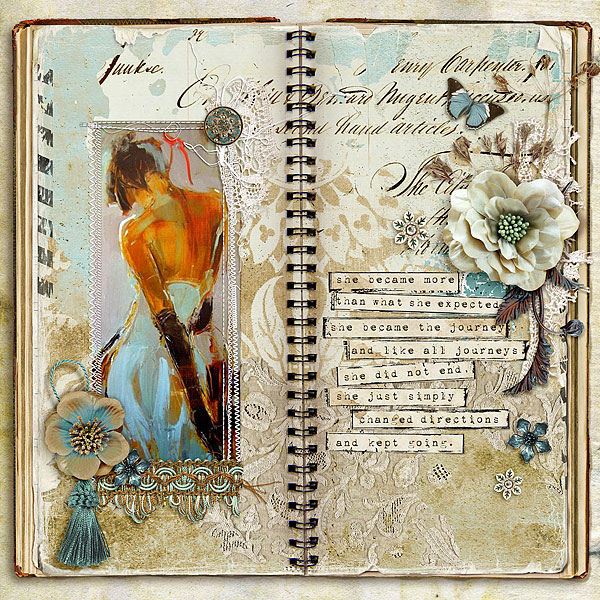 Junksc.
Carpenter
hand articles.
She
she became more
than what she expected
she became the journey
and like all journeys
she did not end.
she just simply
changed directions
and kept going.